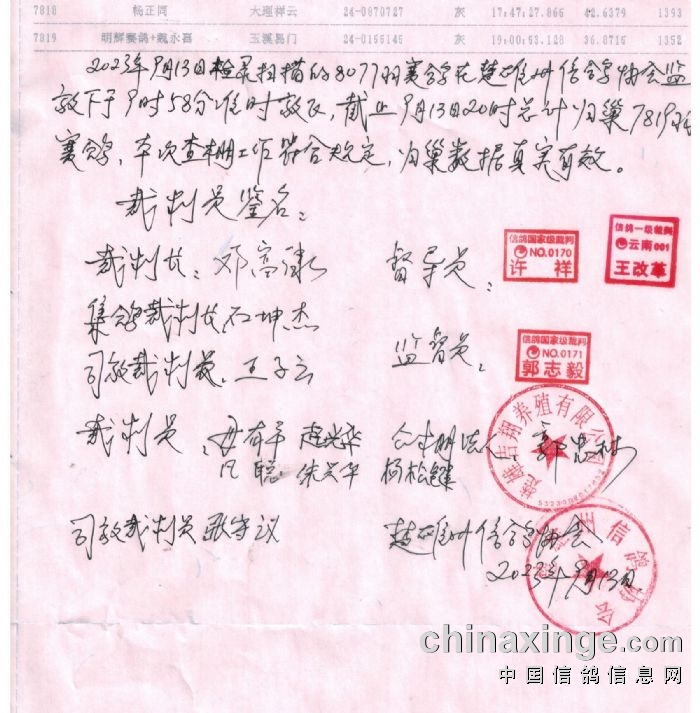 7818 杨正同 大理祥云 24-0870727 灰 17:47:27.866 42.6379 1393
7819 明辉赛鸽+魏永喜 玉溪易门 24-0155145 灰 19:00:53.128 36.8716 1352
2023年9月13日检录扫描的8077羽赛鸽在楚雄州信鸽协会监
放下于9时58分准时放飞,截止9月13日20时总计归巢7819羽
赛鸽,本次查棚工作符合规定,归巢数据真实有效。
裁判员鉴名:
裁判长: 邓高 督导员:
信鸽国家级裁判
NO.0170
许祥
信鸽一级裁判
云南001
王改革
集鸽裁判长 石坤杰
司放裁判员、王子云 监督员:
信鸽国家级裁判
NO.0171
郭志毅
裁判员: 赵光华 公棚法人
聪 朱兴华 杨松键
楚雄吉翔养殖有限公司
司放裁判员 张守议 楚雄州信鸽协会
2023年9月13日
州信鸽协会
chinaxinge.com
中国信鸽信息网